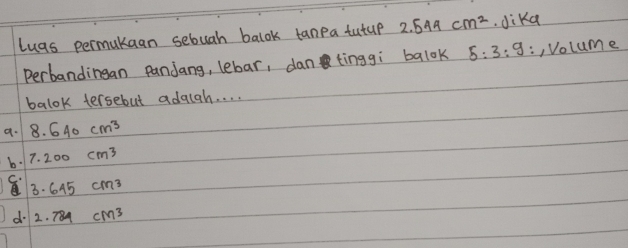 Luas permukaan sebuah balok tanpa tutup 2.544 cm². Jika
Perbandingan Panjang, lebar, dan tinggi balok 5:3:9:, Volume
balok tersebut adalah....
a. 8.640 cm³
b. 7.200 cm³
c. 3.645 cm³
d. 2.784 cm³